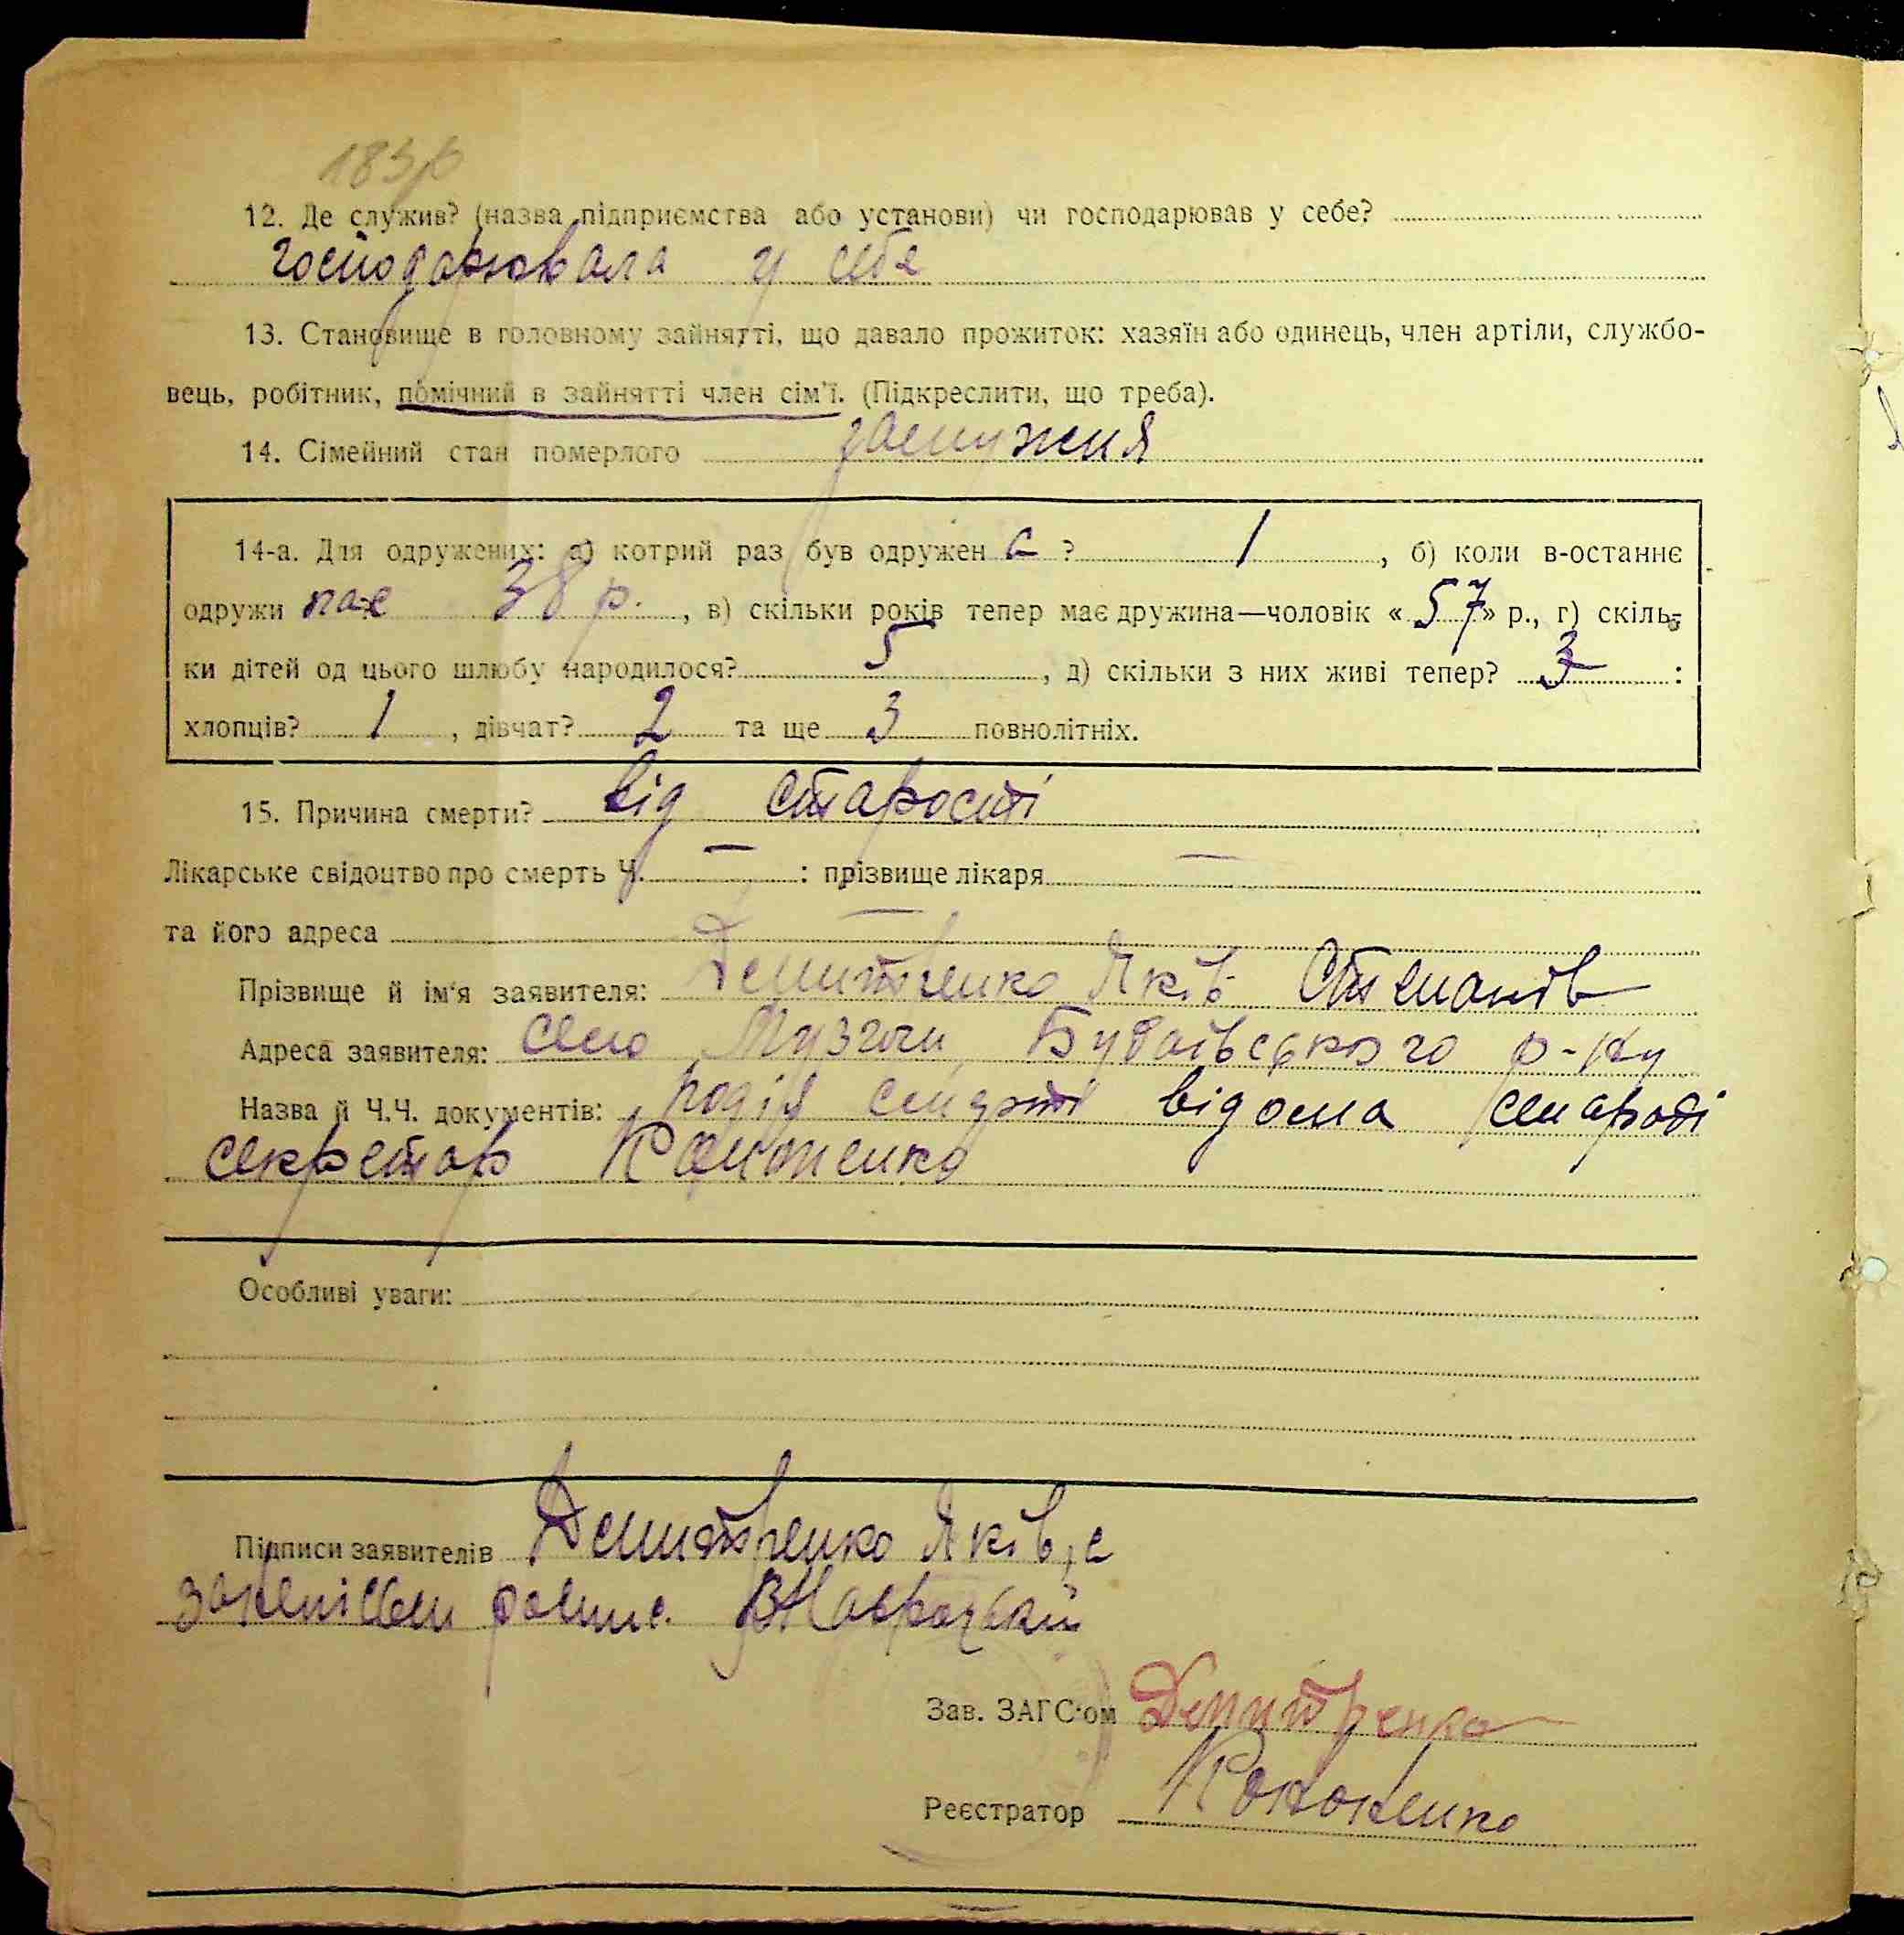 183
12. Де служив? (назва підприємства або установи) чи господарював у себе?
господарювала у себе
13. Становище в головному зайнятті, що давало прожиток: хазяїн або одинець, член артіли, службо-
вець, робітник, помічний в зайнятті член сім'ї. (Підкреслити, що треба).
14. Сімейний стан померлого замужня
14-а. Для одружених: а) котрий раз був одружен а ? 1 , б) коли в-останнє
одружи 38 р. , в) скільки років тепер має дружина—чоловік «57» р., г) скіль-
ки дітей од цього шлюбу народилося? 5 , д) скільки з них живі тепер? 3 :
хлопців? 1 , дівчат? 2 та ще 3 повнолітніх.
15. Причина смерти? від старості
Лікарське свідоцтво про смерть Ч. — : прізвище лікаря —
та його адреса —
Прізвище й ім'я заявителя: Демитренко Яків Степанів
Адреса заявителя: село Музичі Будаївського р-ну
Назва й Ч.Ч. документів: подія смерти відома
секретар Кононенко
Особливі уваги:
Підписи заявителів Демитренко Яків, с
Зав. ЗАГС'ом Демитренко
Реєстратор Кононенко